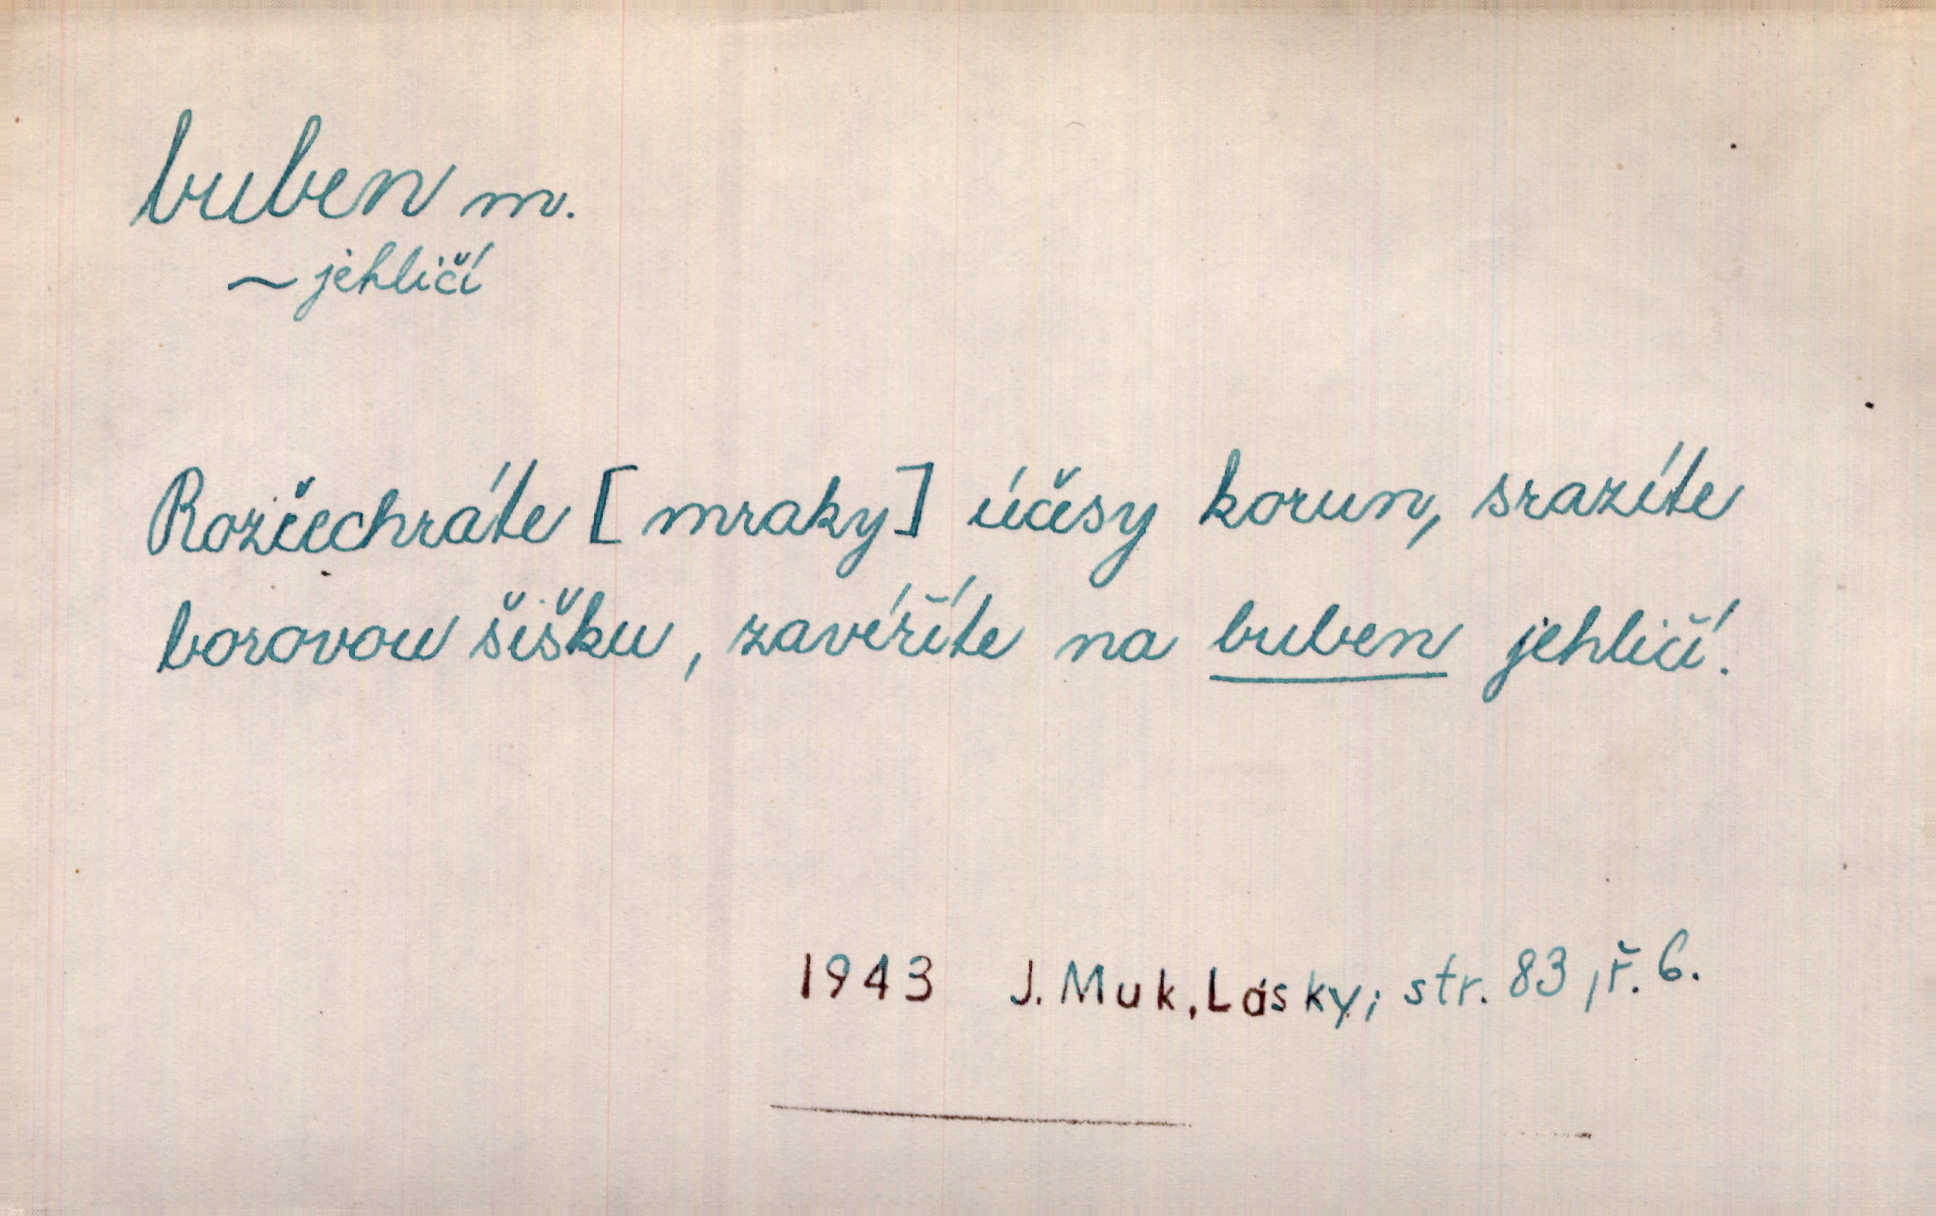 buben m.
~ jehličí
Rozčechráte [mraky] účesy korun, srazíte
borovou šišku, zavéříte na buben jehličí.
1943 J. Muk, Lásky; str. 83, ř. 6.